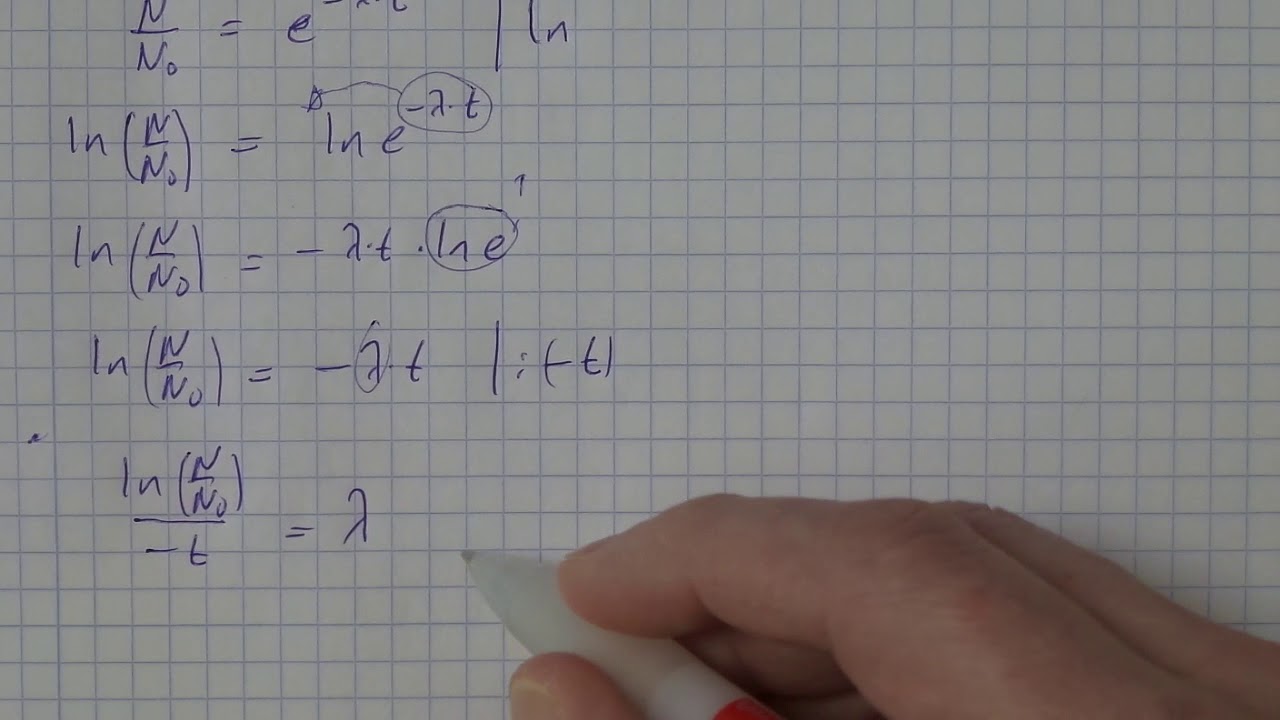 N/N₀ = e^(-λ·t) | ln
ln(N/N₀) = ln e^(-λ·t)
ln(N/N₀) = -λ·t · ln e 1
ln(N/N₀) = -λ·t | : (-t)
ln(N/N₀)/-t = λ